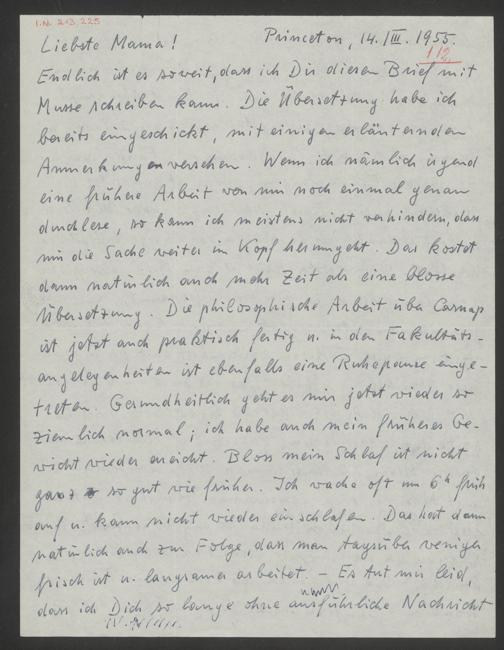 I.N. 213.225
Liebste Mama! Princeton, 14./III. 1955.
112.
Endlich ist es soweit, dass ich Dir diesen Brief mit
Musse schreiben kann. Die Übersetzung habe ich
bereits eingeschickt, mit einigen erläuternden
Anmerkungen versehen. Wenn ich nämlich irgend
eine frühere Arbeit von mir noch einmal genau
durchlese, so kann ich meistens nicht verhindern, dass
mir die Sache weiter im Kopf herumgeht. Das kostet
dann natürlich auch mehr Zeit als eine blosse
Übersetzung. Die philosophische Arbeit über Carnap
ist jetzt auch praktisch fertig u. in den Fakultäts-
angelegenheiten ist ebenfalls eine Ruhepause einge-
treten. Gesundheitlich geht es mir jetzt wieder so
ziemlich normal; ich habe auch mein früheres Ge-
wicht wieder erreicht. Bloss mein Schlaf ist nicht
ganz so gut wie früher. Ich wache oft um 6h früh
auf u. kann nicht wieder einschlafen. Das hat dann
natürlich auch zur Folge, dass man tagsüber weniger
frisch ist u. langsamer arbeitet. – Es tut mir leid,
dass ich Dich so lange ohne ausführliche Nachricht